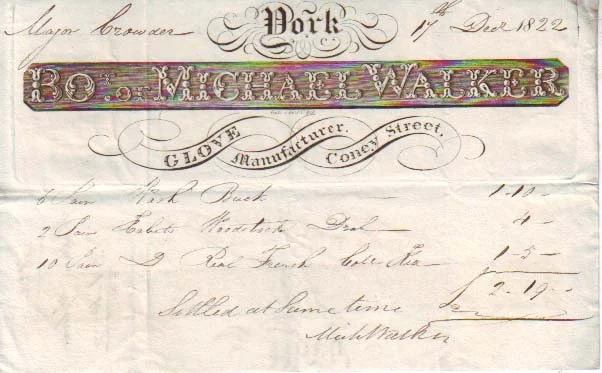 Major Crowder York 17th Decr 1822
Bot. of MICHAEL WALKER
GLOVE Manufacturer. Coney Street.
6 Pair Wash Buck — 1-10-
2 Pair Habits Woodstock 4-
10 Pair Do Real French 1-5-
£ 2-19-
Settled at Same time
Mich Walker